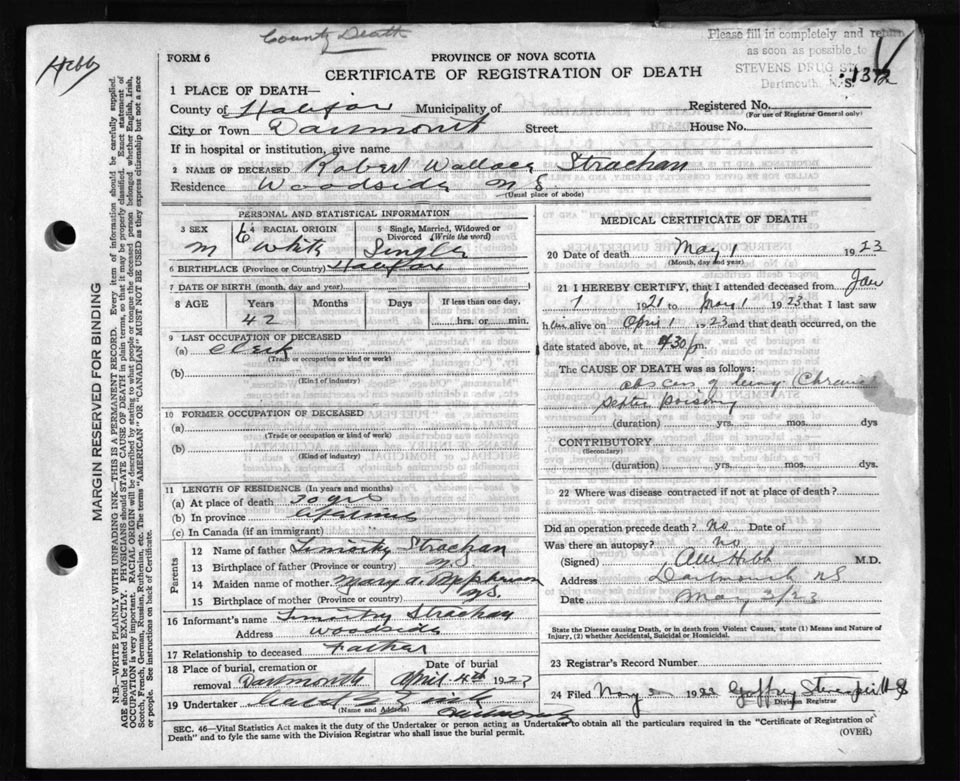 County Death
Please fill in completely and return
as soon as possible to
STEVENS DRUG
Dartmouth, N. S.
Hebb
1372
FORM 6
PROVINCE OF NOVA SCOTIA
CERTIFICATE OF REGISTRATION OF DEATH
MARGIN RESERVED FOR BINDING
N.B.—WRITE PLAINLY WITH UNFADING INK—THIS IS A PERMANENT RECORD. Every item of information should be carefully supplied.
AGE should be stated EXACTLY. PHYSICIANS should STATE CAUSE OF DEATH in plain terms, so that it may be properly classified. Exact statement of
OCCUPATION is very important. RACIAL ORIGIN will be described by stating to what people or tongue the deceased person belonged whether English, Irish,
Scotch, French, German, Russian, Ruthenian, etc. The terms "AMERICAN" OR "CANADIAN" MUST NOT BE USED as they express citizenship but not a race
or people. See instructions on back of Certificate.
1 PLACE OF DEATH—
County of Halifax Municipality of
Registered No.
(For use of Registrar General only)
City or Town Dartmouth Street House No.
If in hospital or institution, give name
2 NAME OF DECEASED Robert Wallace Strachan
Residence Woodside N.S.
(Usual place of abode)
PERSONAL AND STATISTICAL INFORMATION
3 SEX 4 RACIAL ORIGIN 5 Single, Married, Widowed or
Divorced (Write the word)
M White Single
6 BIRTHPLACE (Province or Country) Halifax
7 DATE OF BIRTH (month, day and year)
8 AGE Years Months Days If less than one day,
42 hrs. or min.
9 LAST OCCUPATION OF DECEASED
(a) Clerk
(Trade or occupation or kind or work)
(b)
(Kind of industry)
10 FORMER OCCUPATION OF DECEASED
(a)
(Trade or occupation or kind of work)
(b)
(Kind of industry)
11 LENGTH OF RESIDENCE (In years and months)
(a) At place of death 20 yrs
(b) In province Lifetime
(c) In Canada (if an immigrant)
Parents
12 Name of father Timothy Strachan
13 Birthplace of father (Province or country) N.S.
14 Maiden name of mother Mary A.
15 Birthplace of mother (Province or country) N.S.
16 Informant's name Timothy Strachan
Address Woodside
17 Relationship to deceased Father
18 Place of burial, cremation or Date of burial
removal Dartmouth April 4th 1923
19 Undertaker
(Name and Address) Dartmouth
MEDICAL CERTIFICATE OF DEATH
20 Date of death May 1 1923
(Month, day and year)
21 I HEREBY CERTIFY, that I attended deceased from Jan
1 1921 to May 1 1923 that I last saw
him alive on April 1 1923 and that death occurred, on
date stated above, at 30 pm.
The CAUSE OF DEATH was as follows:
abscess of lung (Chronic
Septic Poisoning
(duration) yrs. mos. dys
CONTRIBUTORY
(Secondary)
(duration) yrs. mos. dys.
22 Where was disease contracted if not at place of death?
Did an operation precede death? No Date of
Was there an autopsy? No
(Signed) Hebb M.D.
Address Dartmouth NS
Date May 2/23
State the Disease causing Death, or in death from Violent Causes, state (1) Means and Nature of
Injury, (2) whether Accidental, Suicidal or Homicidal.
23 Registrar's Record Number
24 Filed May 2 1923
Division Registrar
SEC. 46—Vital Statistics Act makes it the duty of the Undertaker or person acting as Undertaker to obtain all the particulars required in the "Certificate of Registration of
Death" and to fyle the same with the Division Registrar who shall issue the burial permit.
(OVER)